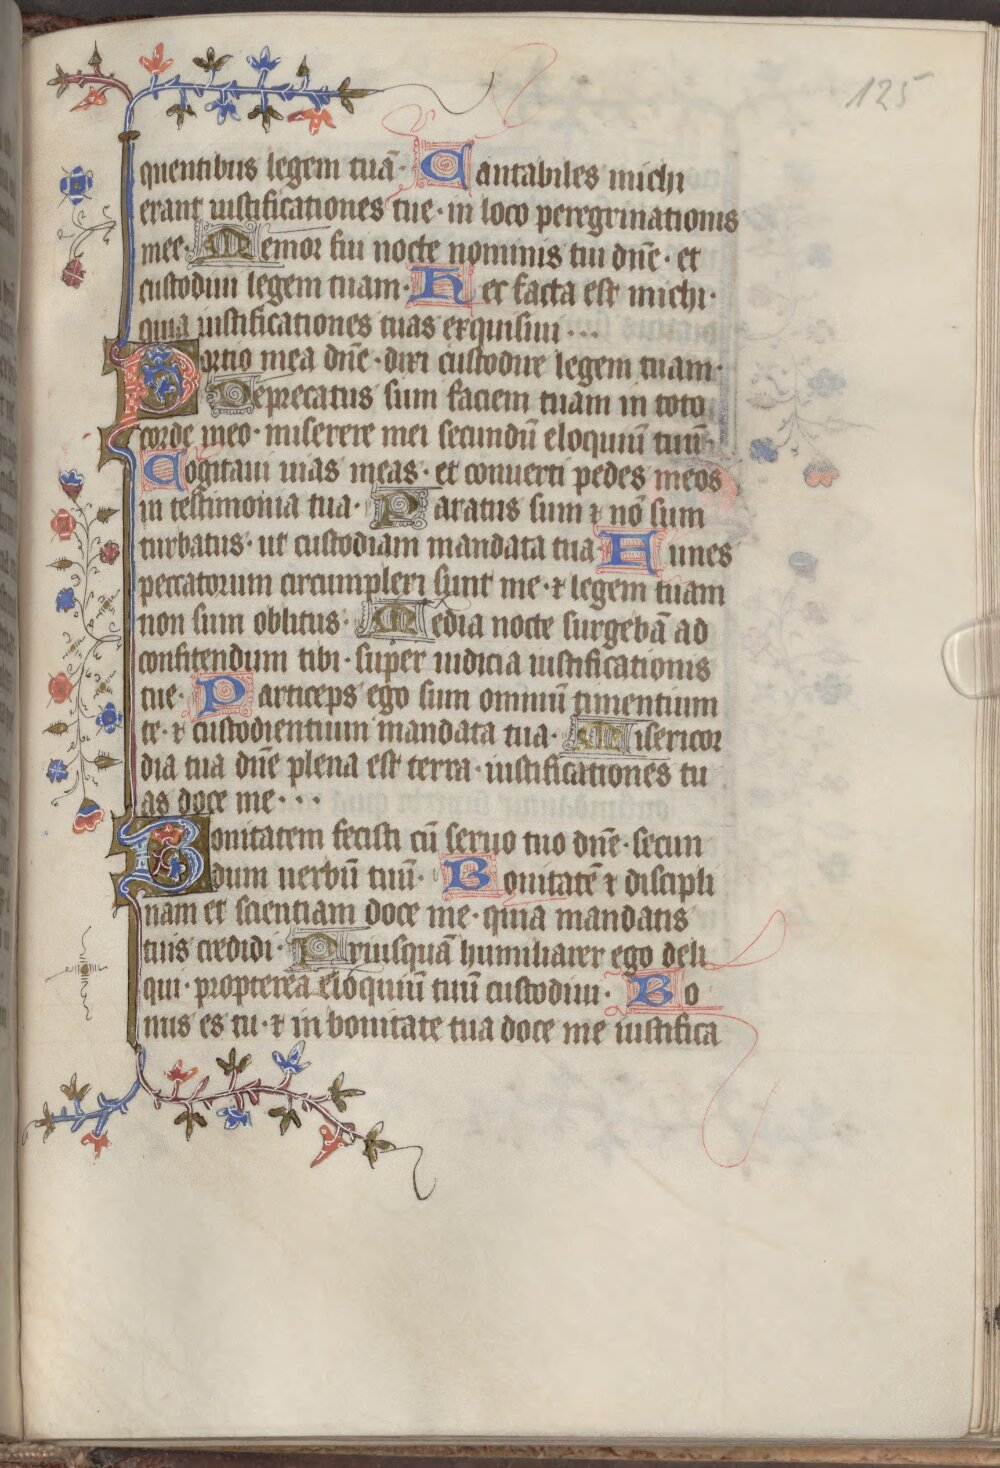 125
quentibus legem tuā· Cantabiles michi
erant iustificationes tue· in loco peregrinationis
mee· Memor fui nocte nominis tui dnē· et
custodiui legem tuam· Hec facta est michi·
quia iustificationes tuas exquisiui···
Portio mea dnē· dixi custodire legem tuam·
Deprecatus sum faciem tuam in toto
corde meo· miserere mei secundū eloquiū tuū·
Cogitaui uias meas· et conuerti pedes meos
in testimonia tua· Paratus sum ⁊ nō sum
turbatus· ut custodiam mandata tua Funes
peccatorum circumplexi sunt me· ⁊ legem tuam
non sum oblitus· Media nocte surgebā ad
confitendum tibi· super iudicia iustificationis
tue· Particeps ego sum omniū timentium
te· ⁊ custodientium mandata tua· Misericor
dia tua dnē plena est terra· iustificationes tu
as doce me···
Bonitatem fecisti cū seruo tuo dnē· secun
dum uerbū tuū· Bonitatē ⁊ discipli
nam et scientiam doce me· quia mandatis
tuis credidi· Priusquā humiliarer ego deli
qui· propterea eloquiū tuū custodiui· Bo
nus es tu· ⁊ in bonitate tua doce me iustifica